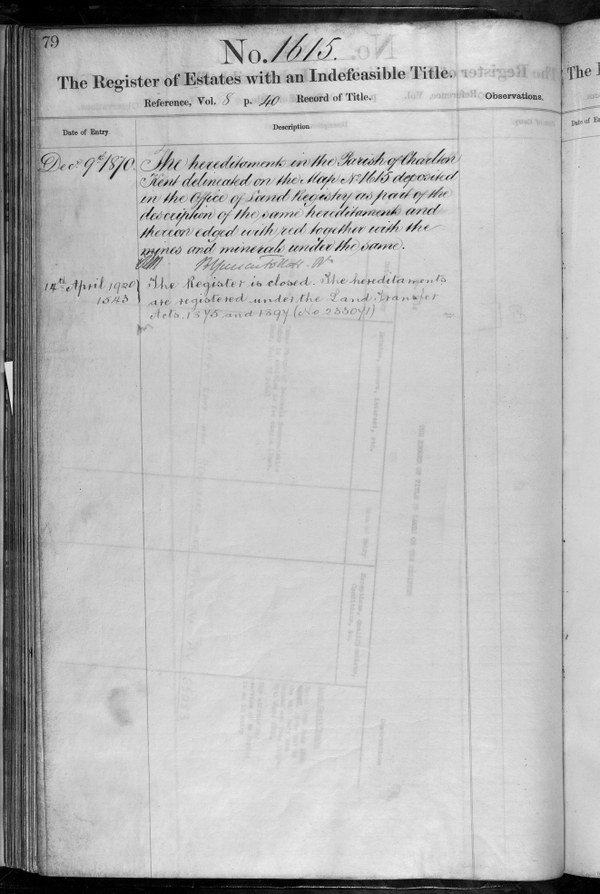 79
No. 1615.
The Register of Estates with an Indefeasible Title.
Reference, Vol. 8 p. 40 Record of Title.
Observations.
Date of Entry
Description.
Decr 9th 1870.
The hereditaments in the Parish of Charlton
Kent delineated on the Map No 1615 deposited
in the Office of Land Registry as part of the
description of the same hereditaments and
thereon edged with red together with the
mines and minerals under the same.
14th April 1920
1543
The Register is closed. The hereditaments
are registered under the Land Transfer
Acts. 1875 and 1897
The
Date of En